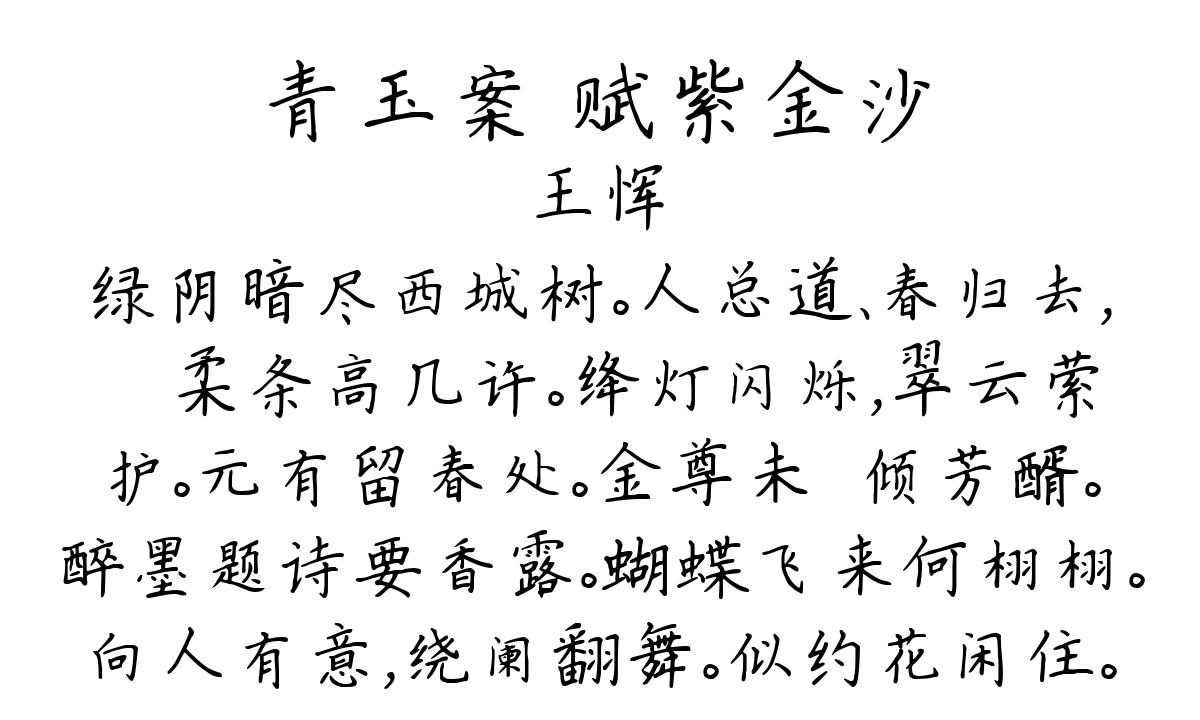 青玉案 赋紫金沙
王恽
绿阴暗尽西城树。人总道、春归去,
柔条高几许。绛灯闪烁,翠云萦
护。元有留春处。金尊未 倾芳醑。
醉墨题诗要香露。蝴蝶飞来何栩栩。
向人有意,绕阑翻舞。似约花闲住。